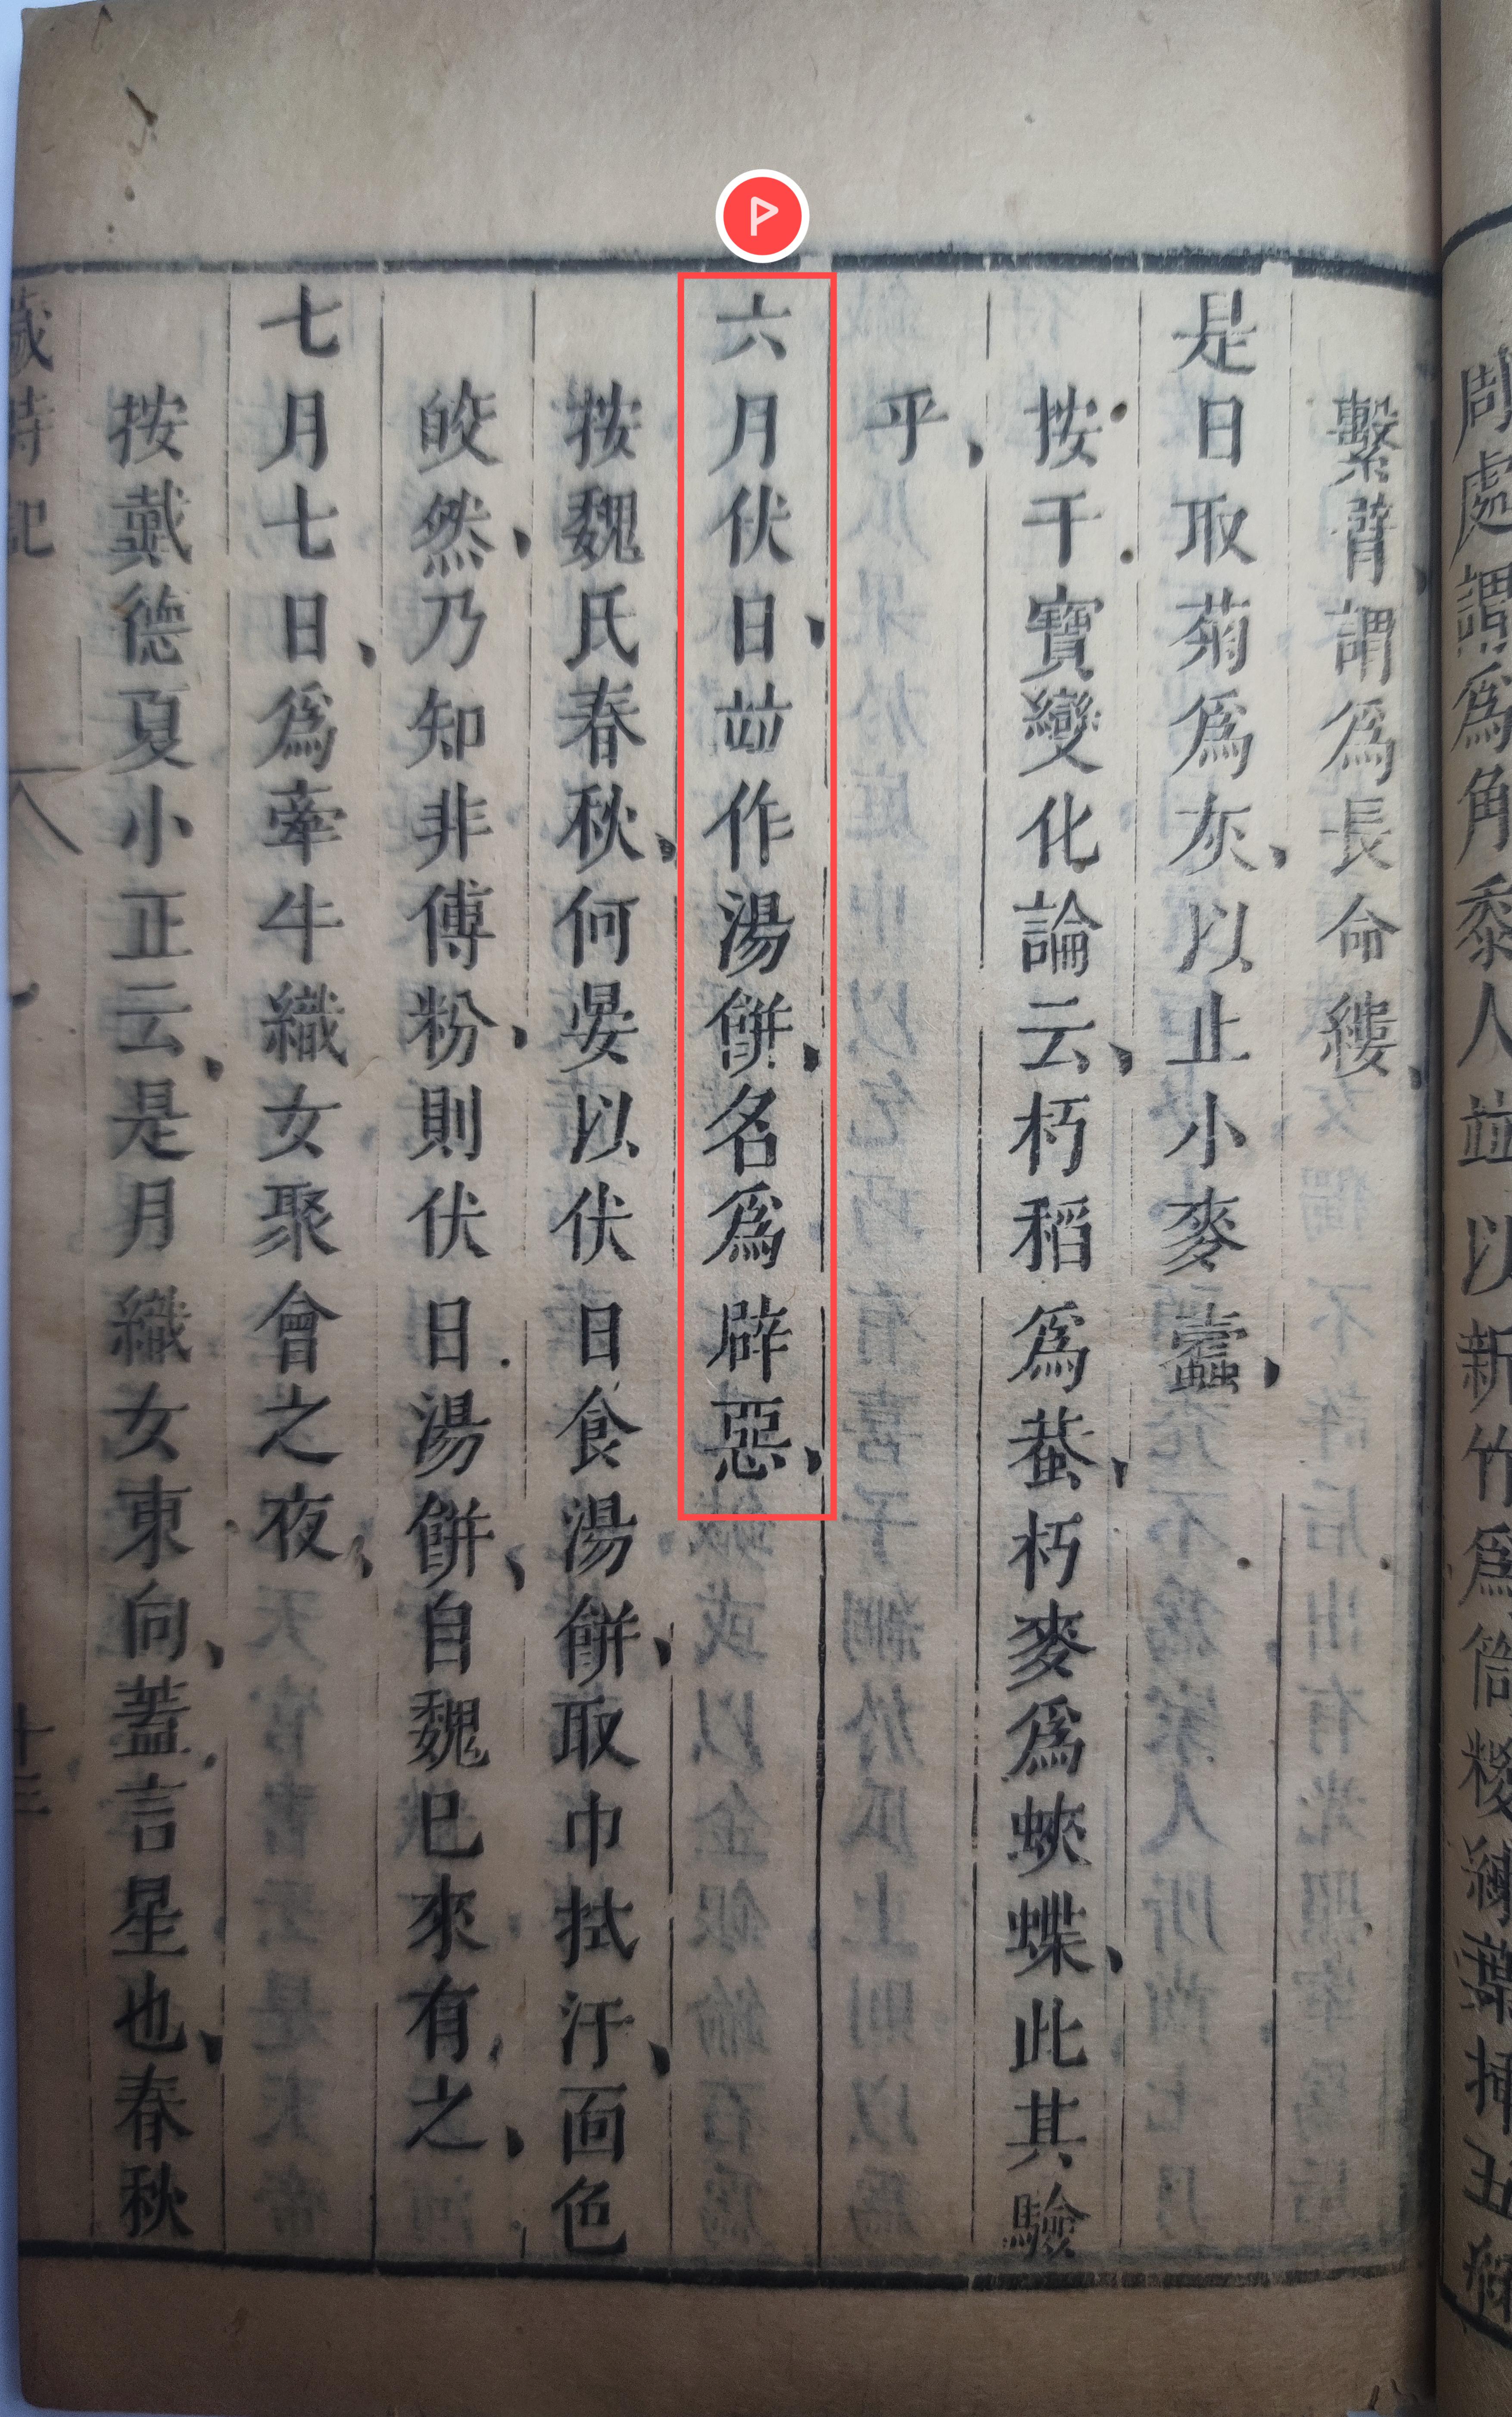 周處謂爲角黍人並以新竹爲筒糭練葉揷五綵
繫臂謂爲長命縷
是日取菊爲灰以止小麥蠹
按干寶變化論云朽稻爲蛬朽麥爲蛺蝶此其驗
乎
六月伏日並作湯餅名爲辟惡
按魏氏春秋何晏以伏日食湯餅取巾拭汗面色
皎然乃知非傅粉則伏日湯餅自魏已來有之
七月七日爲牽牛織女聚會之夜
按戴德夏小正云是月織女東向蓋言星也春秋
歲時記
十三